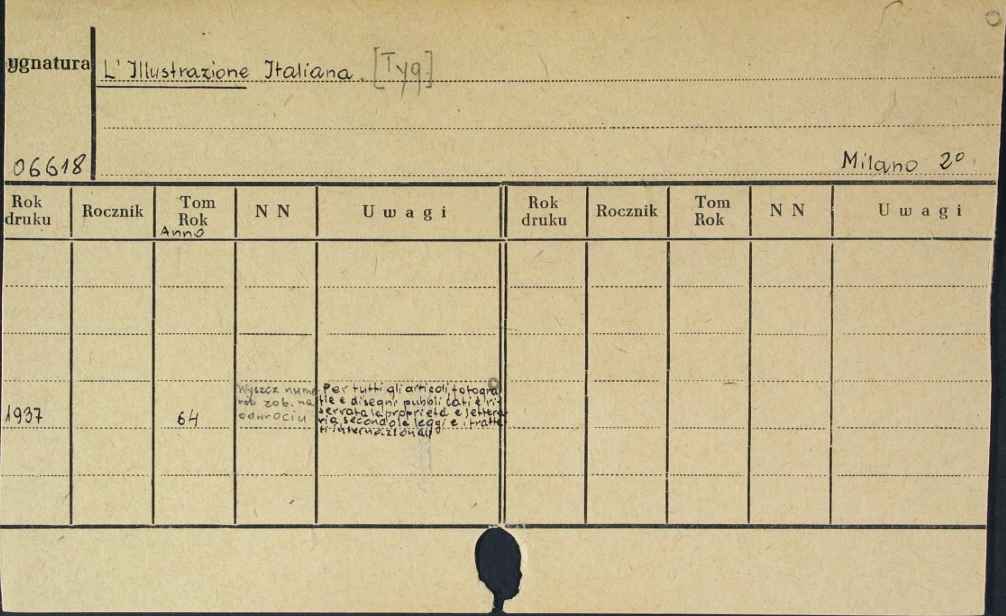 ygnatura L' Illustrazione Italiana. [Tyg]
06618 Milano 2º
Rok druku Rocznik Tom Rok Anno N N Uwagi Rok druku Rocznik Tom Rok N N Uwagi
1937 64
Wyszcz nume
rów zob. na
odwrociu
Per tutti gli articoli, fotogra
fie e disegni pubblicati è ri
servata la proprietà e lettera
ria secondo le leggi e i tratta
ti internazionali